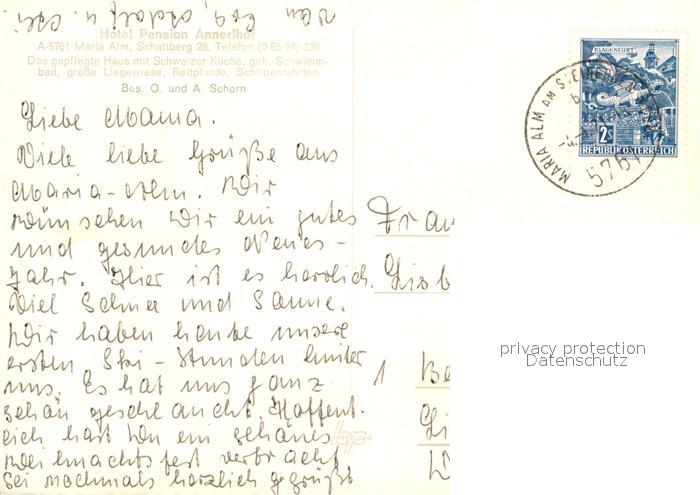 Hotel Pension Annerlhof
A-5761 Maria Alm, Schattberg 28, Telefon (0 65 84) 330
Das gepflegte Haus mit Schweizer Küche, geh. Schwimm-
bad, große Liegewiese, Reitpferde, Schlittenfahrten
Bes. O. und A. Schorn
Liebe Mama.
Viele liebe Grüße aus
Maria-Alm. Wir
wünschen Dir ein gutes
und gesundes Neues-
Jahr. Hier ist es herrlich.
Viel Schnee und Sonne.
Wir haben heute unsere
ersten Ski-Stunden hinter
uns. Es hat uns ganz
schön geschlaucht. Hoffent-
lich hast Du ein schönes
Weihnachtsfest verbracht
Sei nochmals herzlich gegrüßt
von
u.
Frau
Lisb
1 Be
KLAGENFURT
2S
REPUBLIK ÖSTERREICH
MARIA ALM AM STEINERNEN MEER
5761
privacy protection
Datenschutz